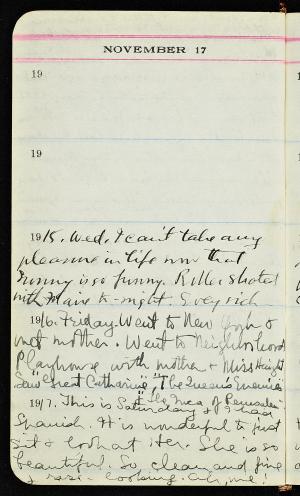 NOVEMBER 17
19
19
1915. Wed. I can't take any
pleasure in life now that
is so funny. skated
with to-night.
1916. Friday. Went to New York &
met mother. Went to Neighborhood
Playhouse with mother & Miss
Saw "Great Catharine", "The Queen's Enemies"
& The of Jerusalem.
1917. This is Saturday & I had
Spanish. It is wonderful to just
sit & look at Her. She is so
beautiful. So clean and fine
& looking. Ah, me!